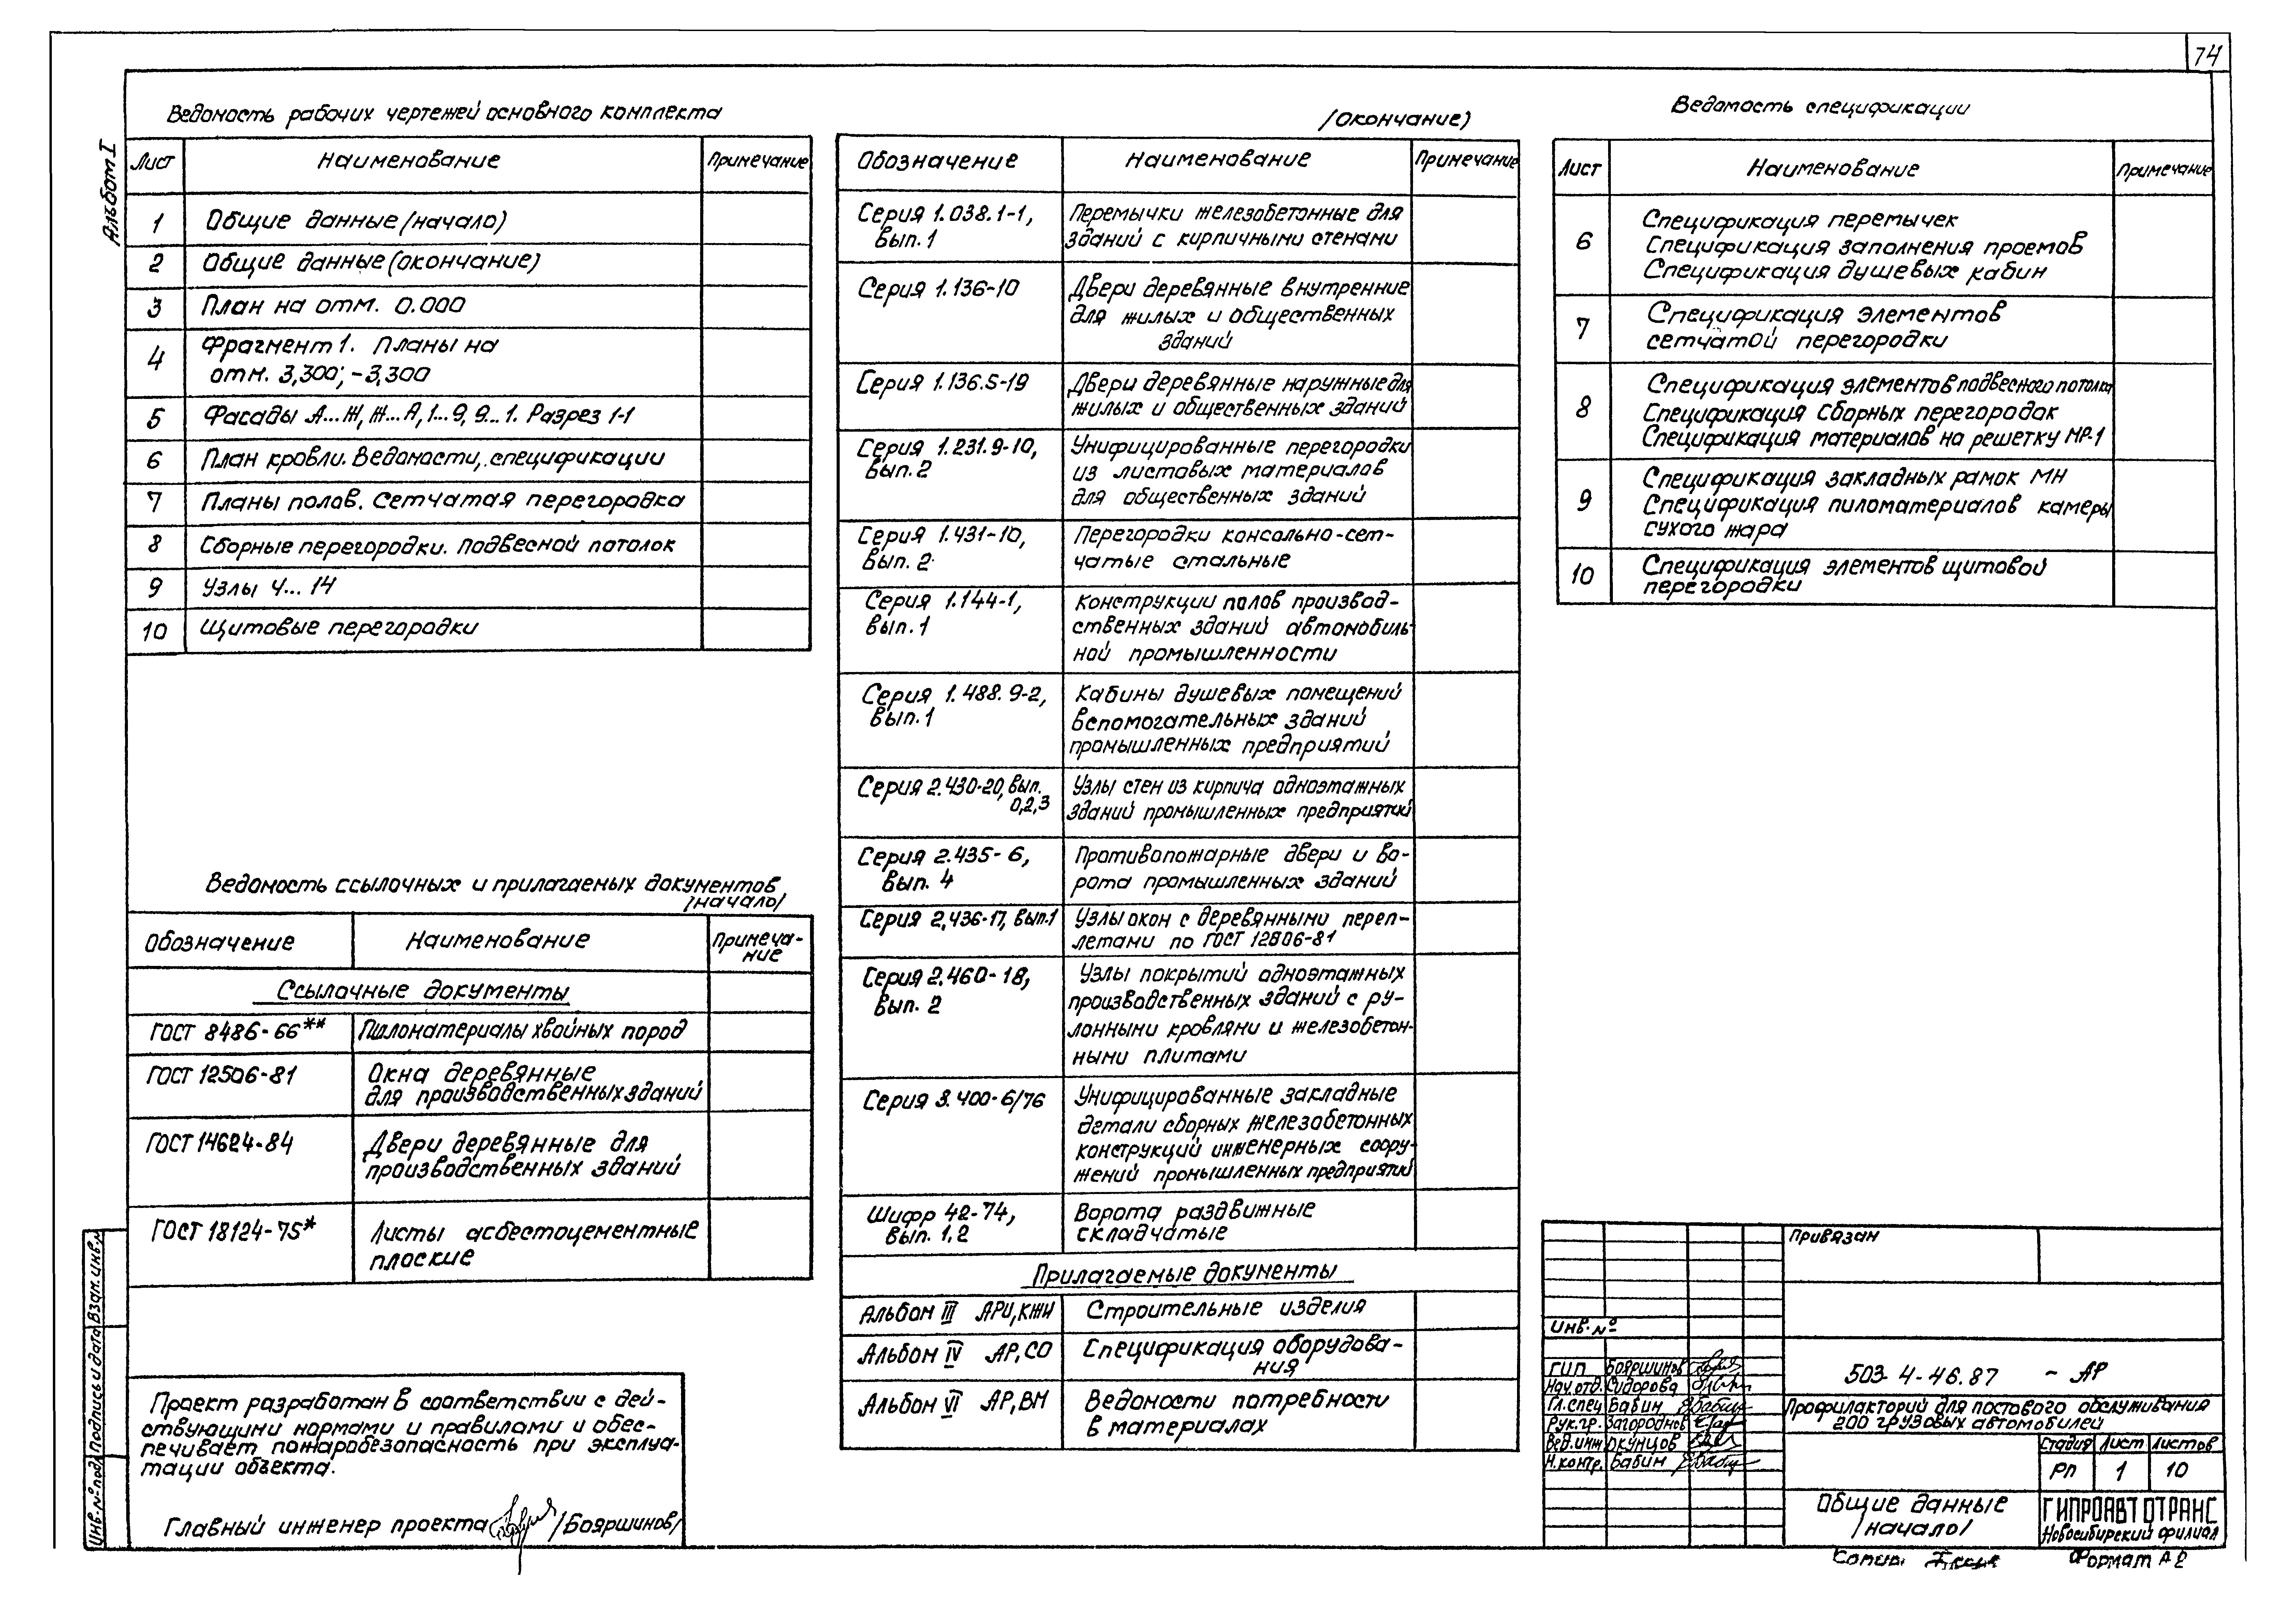 74
Альбом I
Ведомость рабочих чертежей основного комплекта
Лист Наименование Примечание
1 Общие данные (начало)
2 Общие данные (окончание)
3 План на отм. 0.000
4 Фрагмент 1. Планы на
отм. 3,300; -3,300
5 Фасады А...Ж, Ж...А, 1...9, 9...1. Разрез 1-1
6 План кровли. Ведомости, спецификации
7 Планы полов. Сетчатая перегородка
8 Сборные перегородки. Подвесной потолок
9 Узлы 4...14
10 Щитовые перегородки
Ведомость ссылочных и прилагаемых документов
/начало/
Обозначение Наименование Примеча-
ние
Ссылочные документы
ГОСТ 8486-66** Пиломатериалы хвойных пород
ГОСТ 12506-81 Окна деревянные
для производственных зданий
ГОСТ 14624-84 Двери деревянные для
производственных зданий
ГОСТ 18124-75* Листы асбестоцементные
плоские
Проект разработан в соответствии с дей-
ствующими нормами и правилами и обес-
печивает пожаробезопасность при эксплуа-
тации объекта.
Главный инженер проекта /Бояршинов/
Взам. инв.№
Подпись и дата
Инв.№ подл
/Окончание)
Обозначение Наименование Примечание
Серия 1.038.1-1, Перемычки железобетонные для
вып. 1 зданий с кирпичными стенами
Серия 1.136-10 Двери деревянные внутренние
для жилых и общественных
зданий
Серия 1.136.5-19 Двери деревянные наружные для
жилых и общественных зданий
Серия 1.231.9-10, Унифицированные перегородки
вып. 2 из листовых материалов
для общественных зданий
Серия 1.431-10, Перегородки консольно-сет-
вып. 2 чатые стальные
Серия 1.144-1, Конструкции полов производ-
вып. 1 ственных зданий автомобиль-
ной промышленности
Серия 1.488.9-2, Кабины душевых помещений
вып. 1 вспомогательных зданий
промышленных предприятий
Серия 2.430-20, вып. Узлы стен из кирпича одноэтажных
0,2,3 зданий промышленных предприятий
Серия 2.435-6, Противопожарные двери и во-
вып. 4 рота промышленных зданий
Серия 2.436-17, вып.1 Узлы окон с деревянными переп-
летами по ГОСТ 12506-81
Серия 2.460-18, Узлы покрытий одноэтажных
вып. 2 производственных зданий с ру-
лонными кровлями и железобетон-
ными плитами
Серия 3.400-6/76 Унифицированные закладные
детали сборных железобетонных
конструкций инженерных соору-
жений промышленных предприятий
Шифр 42-74, Ворота раздвижные
вып. 1,2 складчатые
Прилагаемые документы
Альбом III АРИ,КЖИ Строительные изделия
Альбом IV АР,СО Спецификация оборудова-
ния
Альбом VI АР,ВМ Ведомости потребности
в материалах
Ведомость спецификации
Лист Наименование Примечание
Спецификация перемычек
6 Спецификация заполнения проемов
Спецификация душевых кабин
7 Спецификация элементов
сетчатой перегородки
Спецификация элементов подвесного потолка
8 Спецификация сборных перегородок
Спецификация материалов на решетку МР-1
Спецификация закладных рамок МН
9 Спецификация пиломатериалов камеры
сухого жара
10 Спецификация элементов щитовой
перегородки
Привязан
Инв.№
ГИП Бояршинов
Нач.отд. Сидорова
Гл.спец Бабин
Рук.гр. Загороднов
Вед.инж Окунцов
Н.контр. Бабин
503-4-46.87 - АР
Профилакторий для постового обслуживания
200 грузовых автомобилей
Стадия Лист Листов
РП 1 10
Общие данные
/начало/
ГИПРОАВТОТРАНС
Новосибирский филиал
Копир.
Формат А2